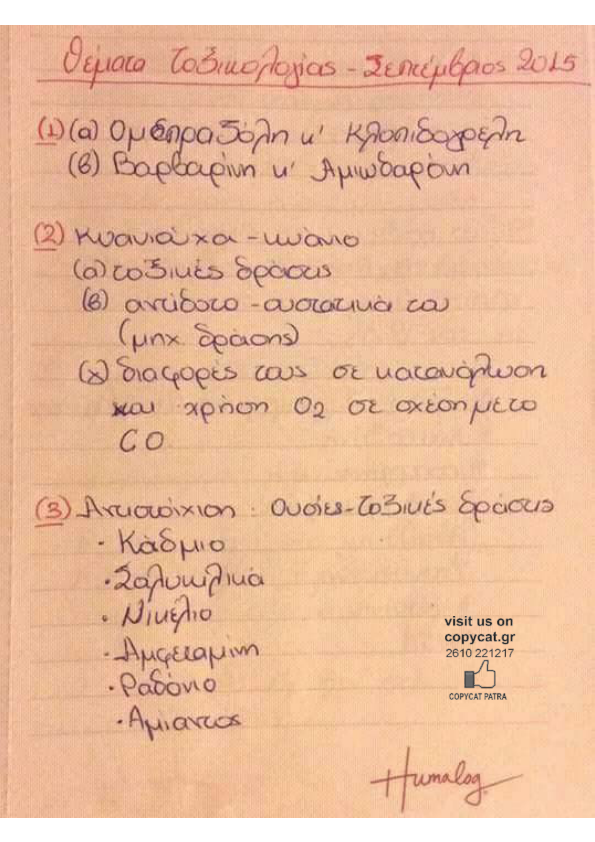 Θέματα Τοξικολογίας - Σεπτέμβριος 2015
(1) (α) Ομεπραζόλη κ' Κλοπιδογρέλη
(β) Βαρβαρίνη κ' Αμιωδαρόνη
(2) Κυανιούχα - κυάνιο
(α) τοξικές δράσεις
(β) αντίδοτο - συστατικά του
(μηχ δράσης)
(γ) διαφορές τους σε κατανάλωση
και χρήση O2 σε σχέση με το
CO
(3) Αντιστοίχιση : Ουσίες - Τοξικές δράσεις
· Κάδμιο
· Σαλυκιλικά
· Νικέλιο
· Αμφεταμίνη
· Ραδόνιο
· Αμίαντος
visit us on
copycat.gr
2610 221217
COPYCAT PATRA
Humalog